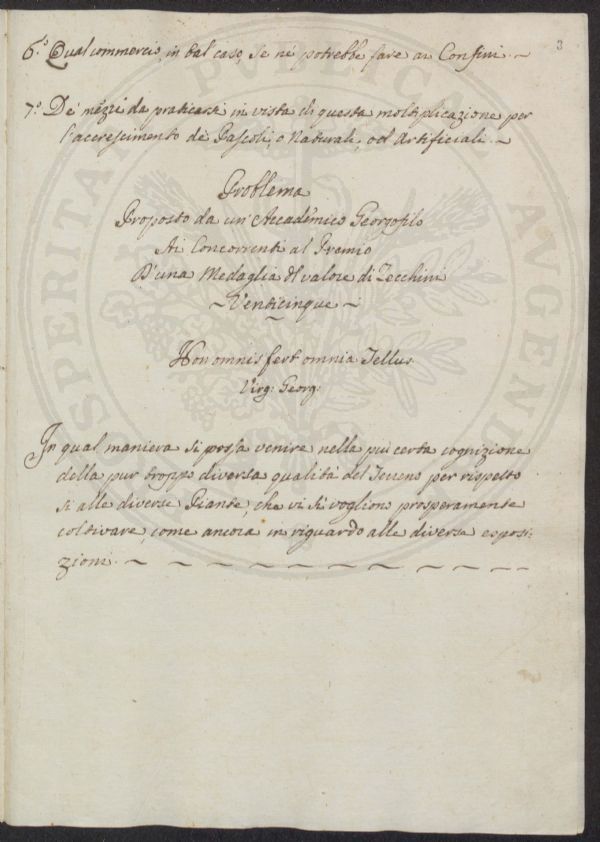 3
6.° Qual commercio in tal caso se ne potrebbe fare ai Confini. ~
7.° De' mezzi da praticarsi in vista di questa moltiplicazione per
l'accrescimento de Pascoli, o Naturali, od Artificiali. ~
Problema
Proposto da un' Accademico Georgofilo
Ai Concorrenti al Premio
D'una Medaglia del valore di Zecchini
~ Venticinque ~
Non omnis fert omnia Tellus
Virg: Georg:
In qual maniera si possa venire nella più certa cognizione
della pur troppo diversa qualità del Terreno per rispetto
sì alle diverse Piante, che vi si vogliono prosperamente
coltivare, come ancora in riguardo alle diverse esposi:
zioni. ~
PROSPERITATI PUBLICAE AUGENDAE